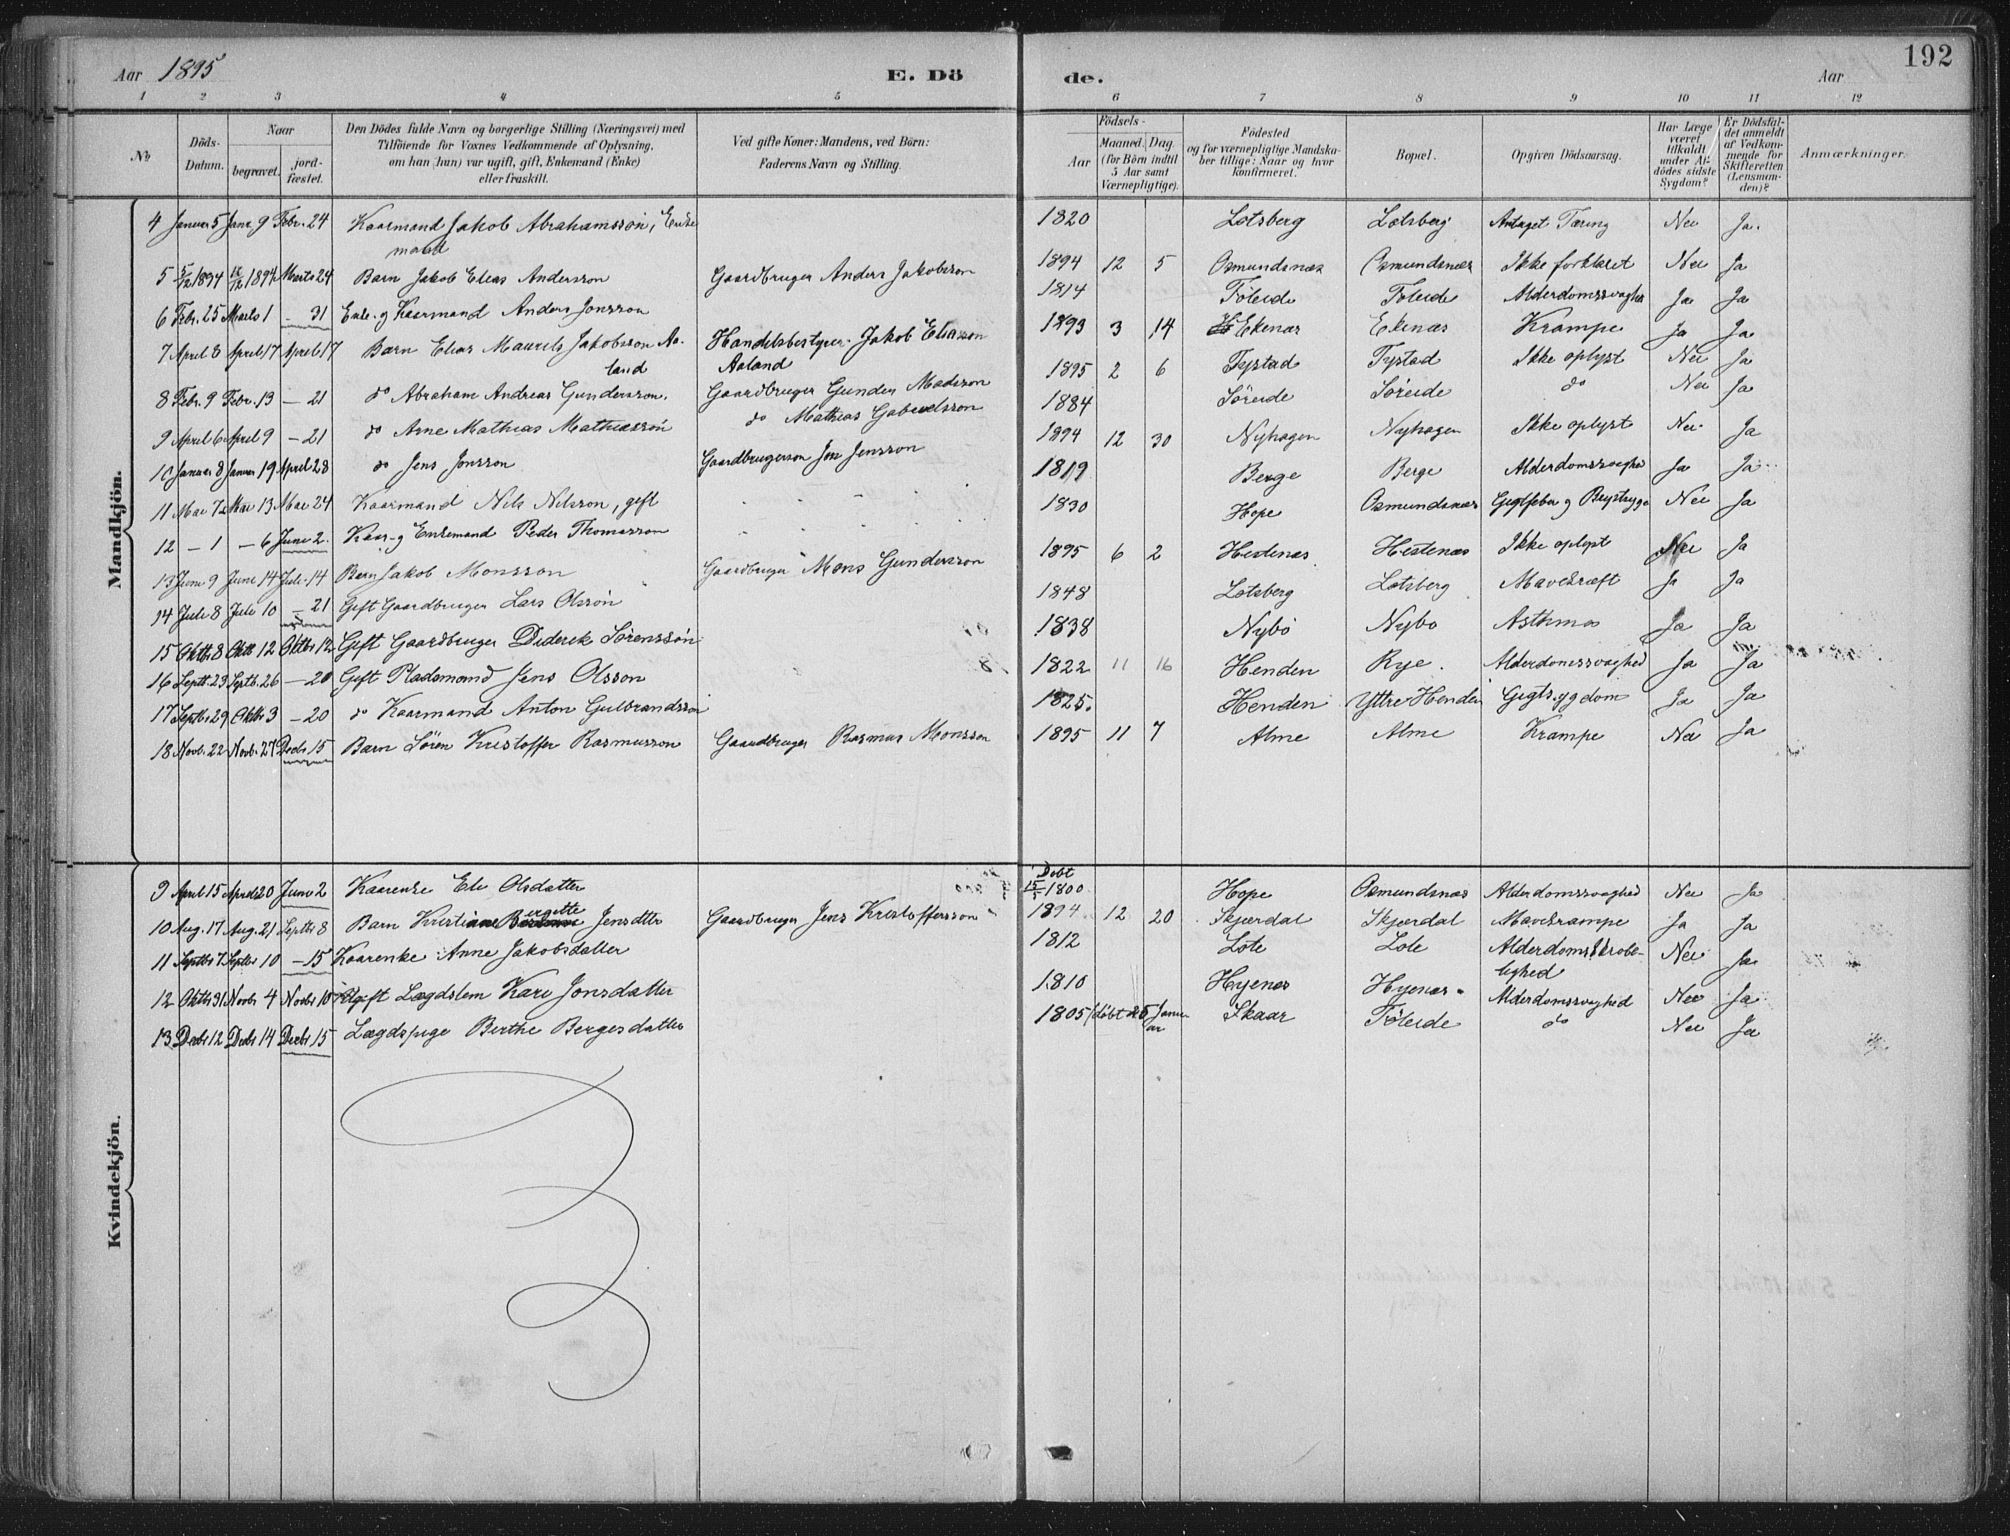 Aar 1895 E. Dö de. Aar 192
1 2 3 4 5 6 7 8 9 10 11 12
No
Döds-Datum.
Naar
begravet.
jord-fæstet.
Den Dödes fulde Navn og borgerlige Stilling (Næringsvei) med
Tilföiende for Voxnes Vedkommende af Oplysning,
om han (hun) var ugift, gift, Enkemand (Enke)
eller fraskilt.
Ved gifte Koner: Mandens, ved Börn:
Faderens Navn og Stilling.
Födsels-
Aar
Maaned. Dag.
(for Börn indtil
5 Aar samt
Værnepligtige).
Födested
og for værnepligtige Mandska-
ber tillige: Naar og hvor
konfirmeret.
Bopæl.
Opgiven Dödsaarsag.
Har Læge
været
tilkaldt
under Af-
dödes sidste
Sygdom?
Er Dödsfal-
det anmeldt
af Vedkom-
mende for
Skifteretten
(Lensman-
den)?
Anmærkninger.
Mandkjön.
4 Januar 5 Janr. 9 Febr. 24 Kaarmand Jakob Abrahamssön, Enke- 1820 Lotsberg Lotsberg Antaget Tæring Nei Ja.
mand
5 5/12 1894 1894 Marts 24 Barn Jakob Elias Andersson Gaardbruger Anders Jakobsson 1894 12 5 Osmundsnæs Osmundsnæs Ikke forklaret Nei Ja
6 Febr. 25 Marts 1 – 31 Enke- og Kaarmand Anders Jonsson 1814 Föleide Föleide Alderdomssvaghed Ja Ja
7 April 8 April 17 April 17 Barn Elias Maurits Jakobsson Aa- Handelsbestyrer Jakob Eliasson 1893 3 14 Ekenæs Ekenæs Krampe Ja Ja
land Aaland
8 Febr. 9 Febr. 13 – 21 do Abraham Andreas Gundersson. Gaardbruger Gunder Madsson 1895 2 6 Tystad Tystad Ikke oplyst Nei Ja
9 April 6 April 9 – 21 do Arne Mathias Mathiassön do Mathias Gabrielsson 1884 Söreide Söreide do Nei Ja
10 Januar 8 Januar 19 April 28 do Jens Jonsson Gaardbrugerson Jon Jensson 1894 12 30 Nyhagen Nyhagen Ikke oplyst Nei Ja
11 Mai 7 Mai 13 Mai 24 Kaarmand Nils Nilsson, gift 1819 Berge Berge Alderdomssvaghed Ja Ja
12 – 1 – 6 Juni 2. Kaar- og Enkemand Peder Thomasson 1830 Hope Osmundsnæs Gigtfeber og Brystsyge Nei Ja
13 Juni 9 Juni 14 Juli 14 Barn Jakob Monsson Gaardbruger Mons Gundersson 1895 6 2 Hestenæs Hestenæs Ikke oplyst Nei Ja
14 Juli 8 Juli 10 – 21 Gift Gaardbruger Lars Olssön 1848 Lotsberg Lotsberg Mavekræft Ja Ja
15 Oktbr 8 Oktb 12 Oktbr 12 Gift Gaardbruger Diderik Sörenssön 1838 Nybö Nybö Asthma Ja Ja
16 Septb. 23 Septb. 26 – 20 Gift Pladsmand Jens Olsson 1822 11 16 Henden Rye. Alderdomssvaghed Ja Ja
17 Septbr 29 Oktbr 3 – 20 do Kaarmand Anton Gulbrandsson 1825. Henden Yttre Henden Gigtsygdom Ja Ja
18 Novb. 22 Novb. 27 Decbr 15 Barn Sören Kristoffer Rasmusson Gaardbruger Rasmus Monsson 1895 11 7 Alme Alme Krampe Nei Ja
Kvindekjön.
9 April 15 April 20 Juni 2 Kaarenke Eli Olsdatter Döbt 15/ 1800 Hope Osmundsnæs Alderdomssvaghed Nei Ja
10 Aug. 17 Aug. 21 Septbr 8 Barn Kristiane Bergitte Jensdtr Gaardbruger Jens Kristoffersson 1894 12 20 Skjærdal Skjærdal Mavekrampe Ja Ja
11 Septbr 7 Septbr 10 – 15 Kaarenke Anne Jakobsdatter 1812 Lote Lote Alderdomsskröbe- Nei Ja
lighed
12 Oktbr 31 Novbr 4 Novbr 10 Ugift Lægdslem Kari Jonsdatter 1810 Hyenæs Hyenæs. Alderdomssvaghed Nei Ja
13 Decbr 12 Decbr 14 Decbr 15 Lægdspige Berthe Bergesdatter 1805 (döbt Janu- Skaar Föleide do Nei Ja
ar